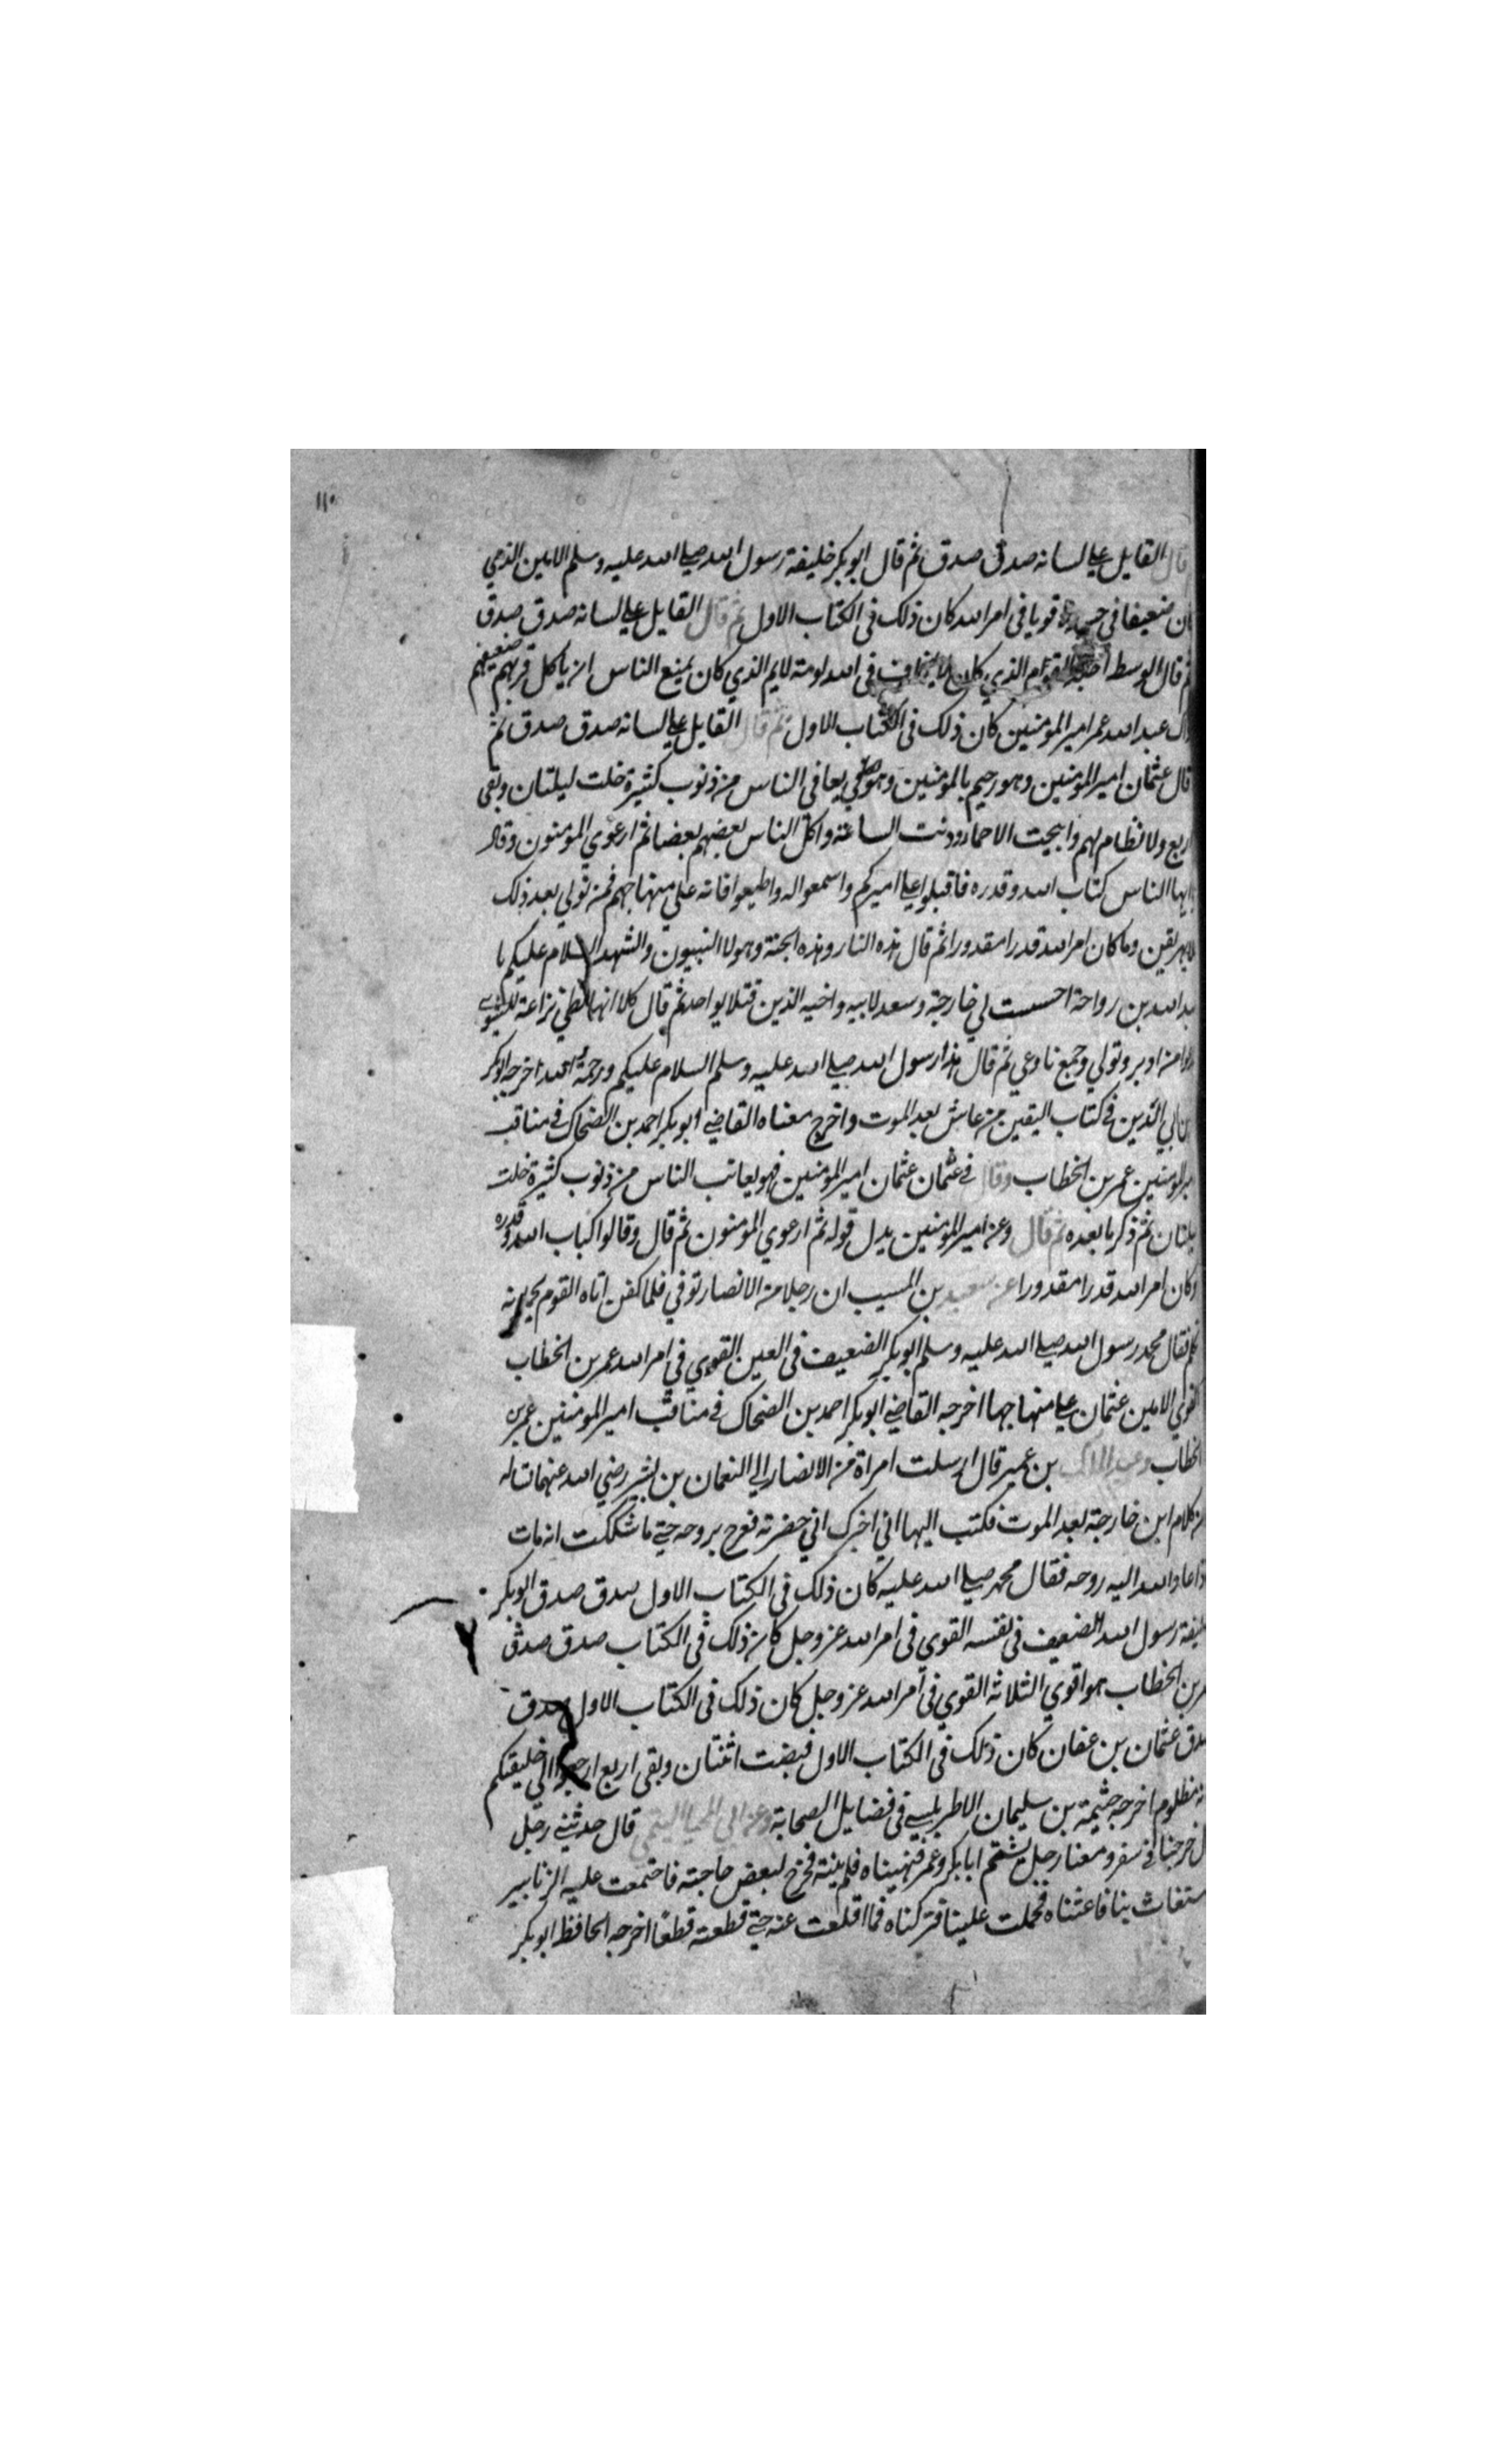 ١١٠
قال القايل علي لسانه صدق صدق ثم قال ابو بكر خليفة رسول الله صلي الله عليه وسلم الامين الذي
كان ضعيفا في جسده قويا في امر الله كان ذلك في الكتاب الاول ثم قال القايل علي لسانه صدق صدق
ثم قال الوسط القوام الذي كان لا يخاف في الله لومة لايم الذي كان يمنع الناس ان ياكل قويهم ضعيفهم
ذاك عبد الله عمر امير المومنين كان ذلك في الكتاب الاول ثم قال القايل علي لسانه صدق صدق ثم
قال عثمان امير المومنين وهو رحيم بالمومنين وهو يعافي الناس من ذنوب كثيرة خلت ليلتان وبقي
اربع ولا نظام لهم وابيحت الاحما ودنت الساعة واكل الناس بعضهم بعضا ثم ارعوي المومنون وقال
يا ايها الناس كتاب الله وقدره فاقبلوا علي اميركم واسمعوا له واطيعوا فانه علي منهاجهم فمن تولي بعد ذلك
وما كان امر الله قدرا مقدورا ثم قال هذه النار وهذه الجنة وهولا النبيون والشهدا السلام عليكم يا
عبد الله بن رواحة احسست لي خارجة وسعد لابيه واخيه الذين قتلا يوم احد ثم قال كلا انها لظي نزاعة للشوي
تدعوا من ادبر وتولي وجمع فاوعي ثم قال هذا رسول الله صلي الله عليه وسلم السلام عليكم ورحمة الله اخرجه ابو بكر
بن ابي الدين في كتاب اليقين من عاش بعد الموت واخرج معناه القاضي ابو بكر احمد بن الضحاك في مناقب
امير المومنين عمر بن الخطاب وقال في عثمان عثمان امير المومنين فهو يعاتب الناس من ذنوب كثيرة خلت
ليلتان ثم ذكر ما بعده ثم قال وعن امير المومنين بدل قوله ثم ارعوي المومنون ثم قال وقالوا كتاب الله وقدره
وكان امر الله قدرا مقدورا عن سعيد بن المسيب ان رجلا من الانصار توفي فلما كفن اتاه القوم
تكلم فقال محمد رسول الله صلي الله عليه وسلم ابو بكر الضعيف في العين القوي في امر الله عمر بن الخطاب
القوي الامين عثمان علي منهاجها اخرجه القاضي ابو بكر احمد بن الضحاك في مناقب امير المومنين عمر بن
الخطاب وعبد الملك بن عمير قال ارسلت امراة من الانصار الي النعمان بن بشير رضي الله عنهما تساله
عن كلام ابن خارجة بعد الموت فكتب اليها اني اخبرك اني حضرته فعرج بروحه حتي ما شككت انه مات
اذ اعاد الله اليه روحه فقال محمد صلي الله عليه كان ذلك في الكتاب الاول صدق صدق ابو بكر
خليفة رسول الله الضعيف في نفسه القوي في امر الله عز وجل كان ذلك في الكتاب صدق صدق
عمر بن الخطاب هو اقوي الثلاثة القوي في امر الله عز وجل كان ذلك في الكتاب الاول صدق
صدق عثمان بن عفان كان ذلك في الكتاب الاول فبضت اثنتان وبقي اربع ارجعوا الي خليفتكم
انه مظلوم اخرجه خيثمة بن سليمان الاطرابلسي في فضايل الصحابة وعن ابي المحيا التيمي قال حدثني رجل
قال خرجنا في سفر ومعنا رجل يشتم ابا بكر وعمر فنهيناه فلم ينته فخرج لبعض حاجته فاجتمعت عليه الزنابير
فاستغاث بنا فاغثناه فحملت علينا فتركناه فما اقلعت عنه حتي قطعته قطعا اخرجه الحافظ ابو بكر